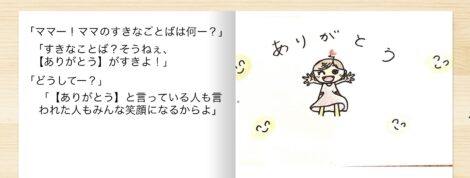 「ママー!ママのすきなごとばは何ー?」
「すきなことば?そうねぇ、
【ありがとう】がすきよ!」
「どうしてー?」
「【ありがとう】と言っている人も言
われた人もみんな笑顔になるからよ」
ありがとう